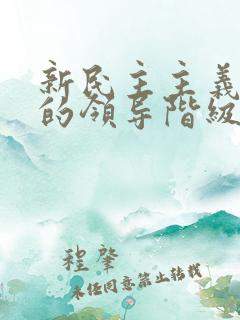 新民主主義
的領导階級
程肇
未任同意禁止转载